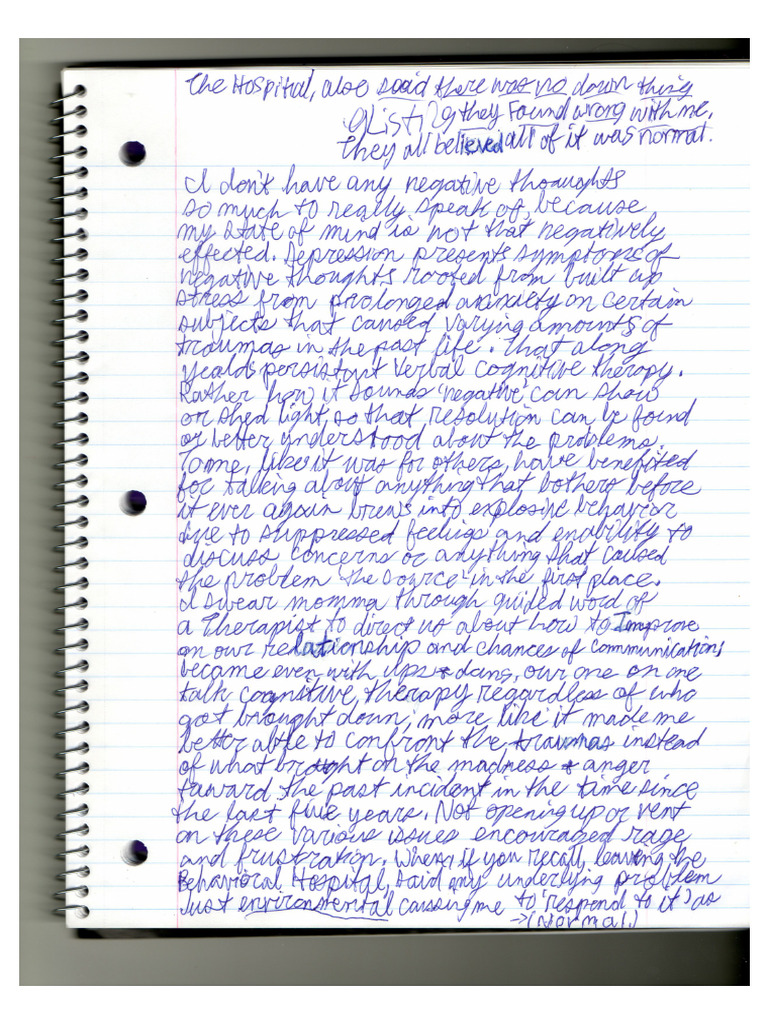 The Hospital, also said there was no down thing
they Found wrong with me,
They all believed all of it was normal.
I don't have any negative thoaughts
so much to really speak of, because
my state of mind is not that negatively
effected. Depression presents symptoms of
negative thoughts rooted from built up
stress from prolonged anxiety on certain
subjects that caused varying amounts of
traumas in the past life. That along
yealds persistant verbal cognitive therapy.
Rather how it sounds 'negative' can show
or shed light, so that resolution can be found
or better understood about the problems.
To me, like it was for others, have benefited
for talking about anything that bothers before
it ever again brews into explosive behavior
due to suppressed feelings and enability to
discuss concerns or anything that caused
the problem 'the source' in the first place.
I swear momma through guided word of
a Therapist to direct us about how to Improve
on our relationship and chances of communications
became even with ups & downs, our one on one
talk cognitive therapy regardless of who
got brought down, more like it made me
better able to confront the traumas instead
of what brought on the madness & anger
taward the past incident in the time since
the last five years. Not opening up or vent
on these various issues encouraged rage
and frustration. When, if you recall, leaving the
Behavioral Hospital, said my underlying problem
Just environmental causing me to 'respond to it' as
→(Normal)